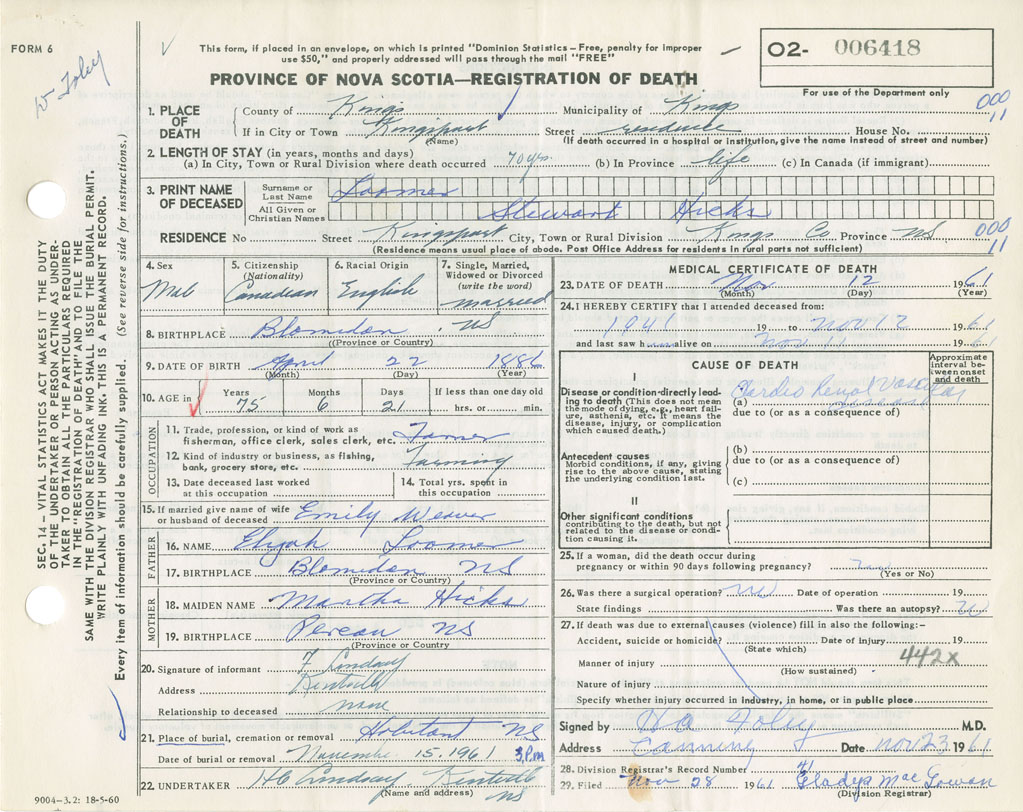 FORM 6
W Foley
This form, if placed in an envelope, on which is printed "Dominion Statistics – Free, penalty for improper
use $50," and properly addressed will pass through the mail "FREE"
O2- 006418
For use of the Department only
PROVINCE OF NOVA SCOTIA—REGISTRATION OF DEATH
000
11
1. PLACE OF DEATH
County of Kings Municipality of Kings
If in City or Town Kingsport Street residence House No.
(Name) (If death occurred in a hospital or institution, give the name instead of street and number)
2. LENGTH OF STAY (in years, months and days)
(a) In City, Town or Rural Division where death occurred 70 yrs (b) In Province life (c) In Canada (if immigrant)
3. PRINT NAME OF DECEASED
Surname or Last Name Loomer
All Given or Christian Names Stewart Hicks
RESIDENCE No Street Kingsport City, Town or Rural Division Kings Co Province NS
000
11
(Residence means usual place of abode. Post Office Address for residents in rural parts not sufficient)
4. Sex Male
5. Citizenship (Nationality) Canadian
6. Racial Origin English
7. Single, Married, Widowed or Divorced (write the word) married
8. BIRTHPLACE Blomidon, NS
(Province or Country)
9. DATE OF BIRTH April 22 1886
(Month) (Day) (Year)
10. AGE in Years Months Days If less than one day old
75 6 21 hrs. or min.
OCCUPATION
11. Trade, profession, or kind of work as
fisherman, office clerk, sales clerk, etc. Farmer
12. Kind of industry or business, as fishing,
bank, grocery store, etc. Farming
13. Date deceased last worked at this occupation
14. Total yrs. spent in this occupation
15. If married give name of wife
or husband of deceased Emily Weaver
FATHER
16. NAME Elijah Loomer
17. BIRTHPLACE Blomidon NS
(Province or Country)
MOTHER
18. MAIDEN NAME Martha Hicks
19. BIRTHPLACE Pereau NS
(Province or Country)
20. Signature of informant F Lindsay
Address Kentville
Relationship to deceased none
21. Place of burial, cremation or removal Habitant NS
Date of burial or removal November 15, 1961 3 P.m
22. UNDERTAKER HC Lindsay Kentville NS
(Name and address)
9004-3.2: 18-5-60
MEDICAL CERTIFICATE OF DEATH
23. DATE OF DEATH Nov 12 1961
(Month) (Day) (Year)
24. I HEREBY CERTIFY that I attended deceased from:
1941 19 to Nov 12 1961
and last saw h alive on Nov 11 1961
CAUSE OF DEATH
Approximate interval between onset and death
I
Disease or condition directly leading to death (This does not mean
the mode of dying, e.g., heart failure, asthenia, etc. It means the
disease, injury, or complication
which caused death.)
(a) Cardio Renal Vascular disease
due to (or as a consequence of)
Antecedent causes
Morbid conditions, if any, giving
rise to the above cause, stating
the underlying condition last.
(b)
due to (or as a consequence of)
(c)
II
Other significant conditions
contributing to the death, but not
related to the disease or condition
causing it.
25. If a woman, did the death occur during
pregnancy or within 90 days following pregnancy?
(Yes or No)
26. Was there a surgical operation? no Date of operation 19
State findings Was there an autopsy? no
27. If death was due to external causes (violence) fill in also the following:-
Accident, suicide or homicide? Date of injury 19
(State which)
442X
Manner of injury
(How sustained)
Nature of injury
Specify whether injury occurred in industry, in home, or in public place
Signed by Foley M.D.
Address Canning Date Nov 23 1961
28. Division Registrar's Record Number 41
29. Filed Nov 28 1961 Gladys MacGowan
(Division Registrar)
SEC. 14 — VITAL STATISTICS ACT MAKES IT THE DUTY
OF THE UNDERTAKER OR PERSON ACTING AS UNDERTAKER TO OBTAIN ALL THE PARTICULARS REQUIRED
IN THE "REGISTRATION OF DEATH" AND TO FILE THE
SAME WITH THE DIVISION REGISTRAR WHO SHALL ISSUE THE BURIAL PERMIT.
WRITE PLAINLY WITH UNFADING INK. THIS IS A PERMANENT RECORD.
Every item of information should be carefully supplied. (See reverse side for instructions.)